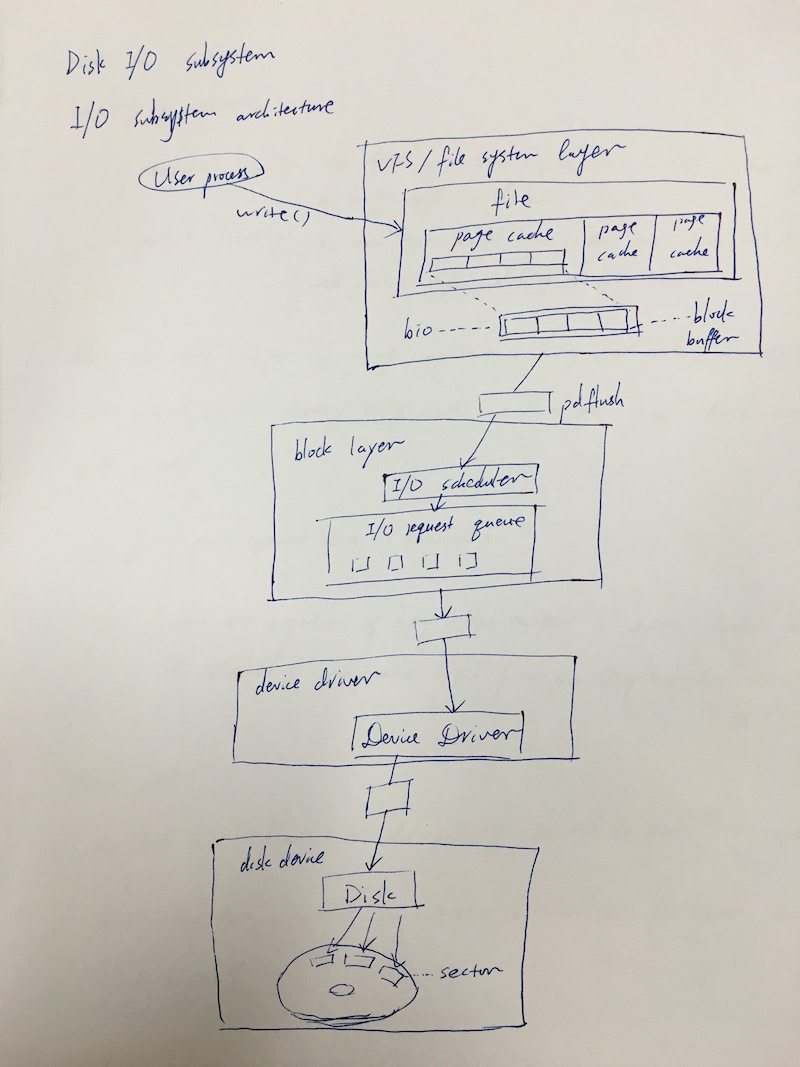 Disk I/O subsystem
I/O subsystem architecture
VFS / file system layer
User process
write()
file
page cache
page
cache
page
cache
bio
block
buffer
pdflush
block layer
I/O scheduler
I/O request queue
device driver
Device Driver
disk device
Disk
sector